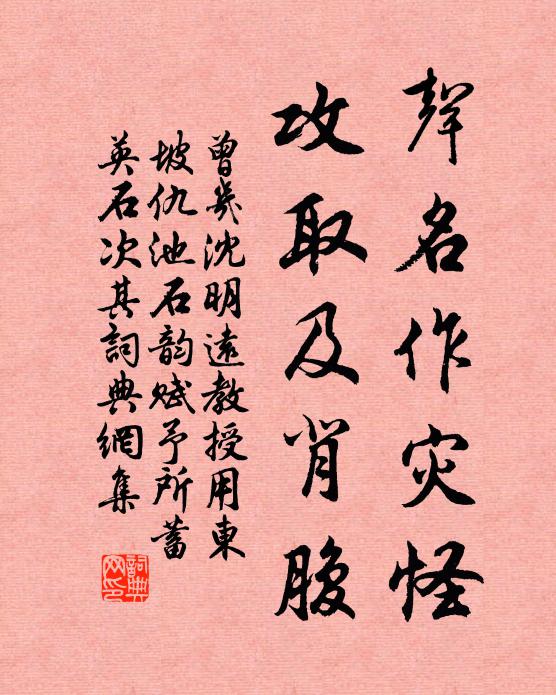 聲名作灾怪
攻取及肖腹
曾幾沈明遠教授用東
坡仇池石韵赋予所蓄
英石次其詞典網集
詞典
网印